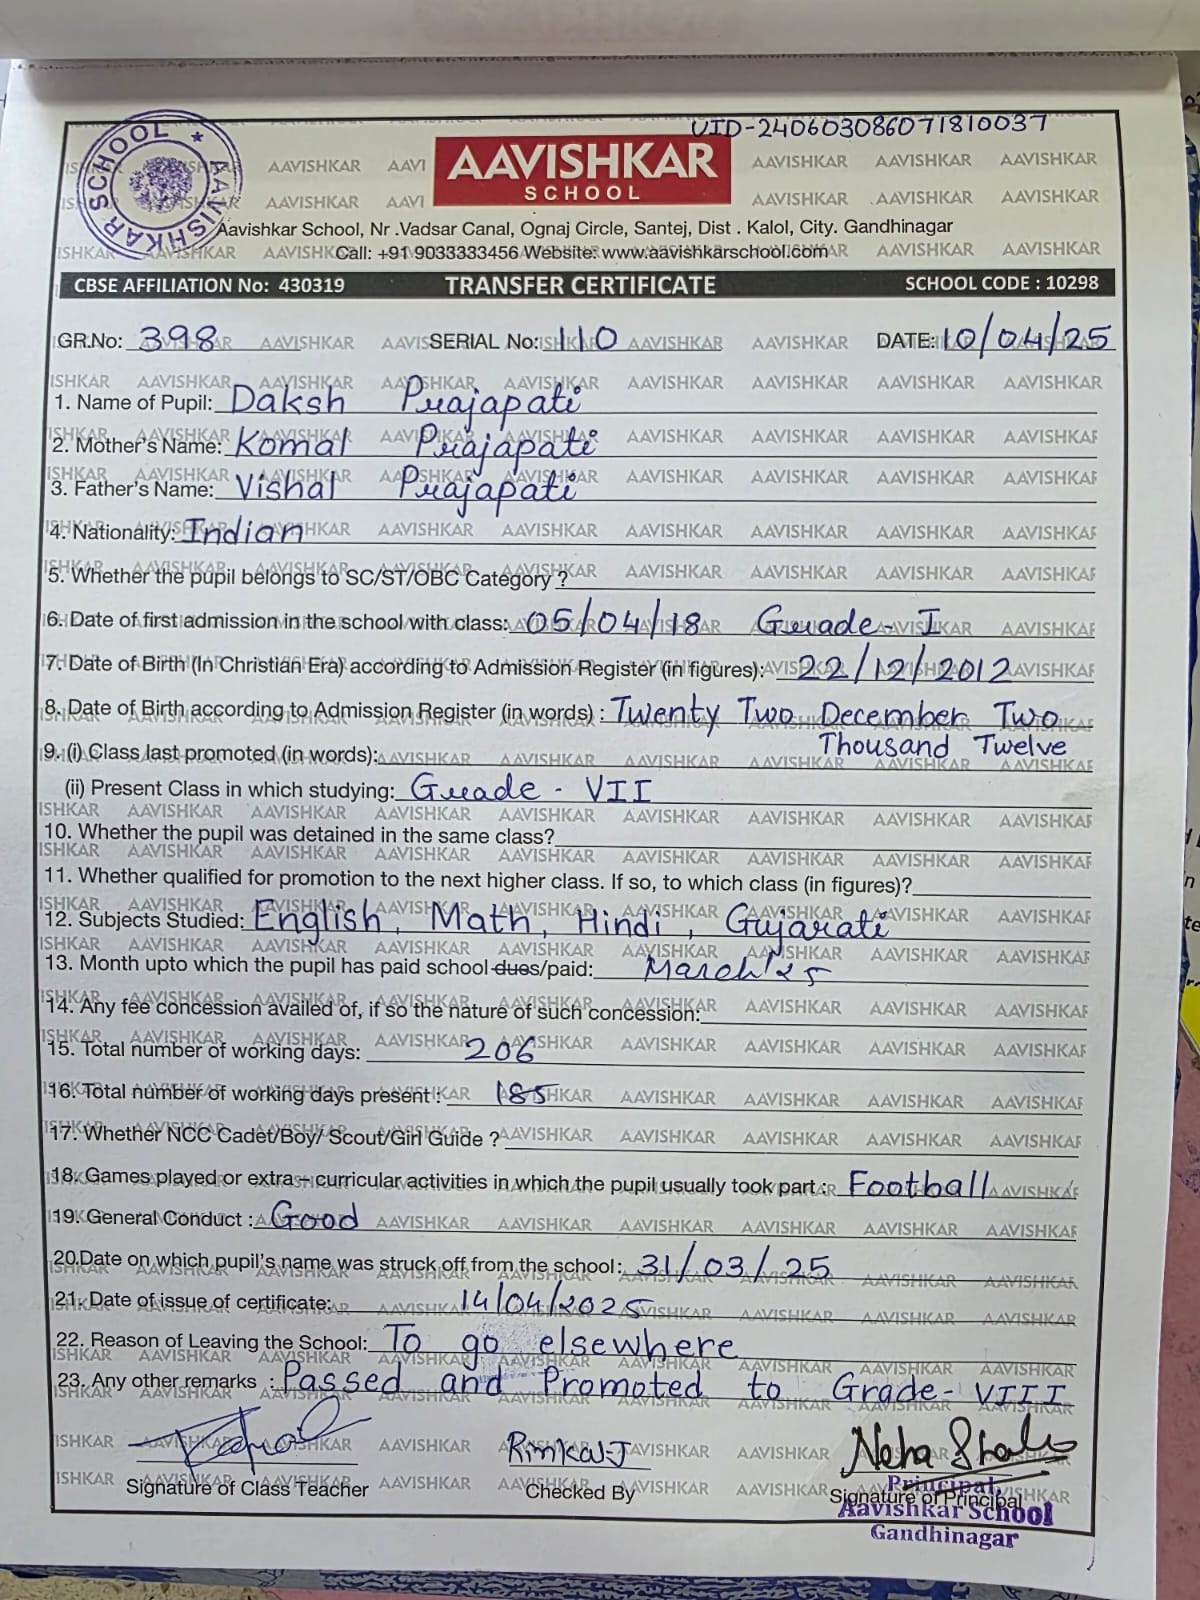 UID-240603086071810037
AAVISHKAR SCHOOL
AAVISHKAR
SCHOOL
Aavishkar School, Nr .Vadsar Canal, Ognaj Circle, Santej, Dist . Kalol, City. Gandhinagar
Call: +91 9033333456 Website: www.aavishkarschool.com
CBSE AFFILIATION No: 430319 TRANSFER CERTIFICATE SCHOOL CODE : 10298
GR.No: 398 SERIAL No: 110 DATE: 10/04/25
1. Name of Pupil: Daksh Prajapati
2. Mother's Name: Komal Prajapati
3. Father's Name: Vishal Prajapati
4. Nationality: Indian
5. Whether the pupil belongs to SC/ST/OBC Category ?
6. Date of first admission in the school with class: 05/04/18 Grade-I
7. Date of Birth (In Christian Era) according to Admission Register (in figures): 22/12/2012
8. Date of Birth according to Admission Register (in words) : Twenty Two December Two
Thousand Twelve
9. (i) Class last promoted (in words):
(ii) Present Class in which studying: Grade - VII
10. Whether the pupil was detained in the same class?
11. Whether qualified for promotion to the next higher class. If so, to which class (in figures)?
12. Subjects Studied: English, Math, Hindi, Gujarati
13. Month upto which the pupil has paid school dues/paid: March'25
14. Any fee concession availed of, if so the nature of such concession:
15. Total number of working days: 206
16. Total number of working days present : 185
17. Whether NCC Cadet/Boy/ Scout/Girl Guide ?
18. Games played or extra – curricular activities in which the pupil usually took part : Football
19. General Conduct : Good
20.Date on which pupil's name was struck off from the school: 31/03/25
21. Date of issue of certificate: 14/04/2025
22. Reason of Leaving the School: To go elsewhere
23. Any other remarks : Passed and Promoted to Grade-VIII
Neha
Signature of Class Teacher Checked By Signature of Principal
Principal,
Aavishkar School
Gandhinagar